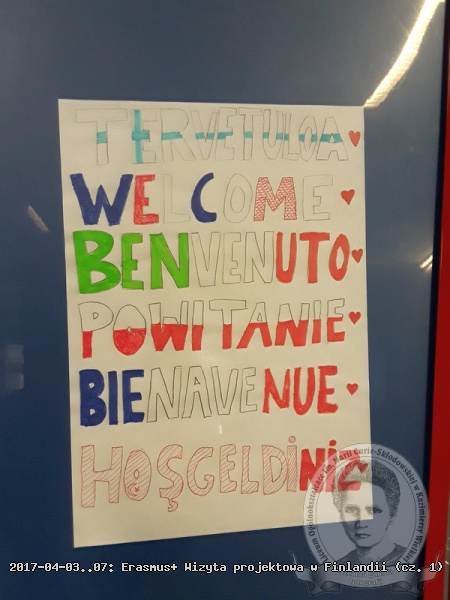 TERVETULOA
WELCOME
BENVENUTO
POWITANIE
BIENAVENUE
HOŞGELDİNİ
Liceum Ogólnokształcące im. Marii Curie-Skłodowskiej w Kazimierzy Wielkiej
2017-04-03..07: Erasmus+ Wizyta projektowa w Finlandii (cz. 1)